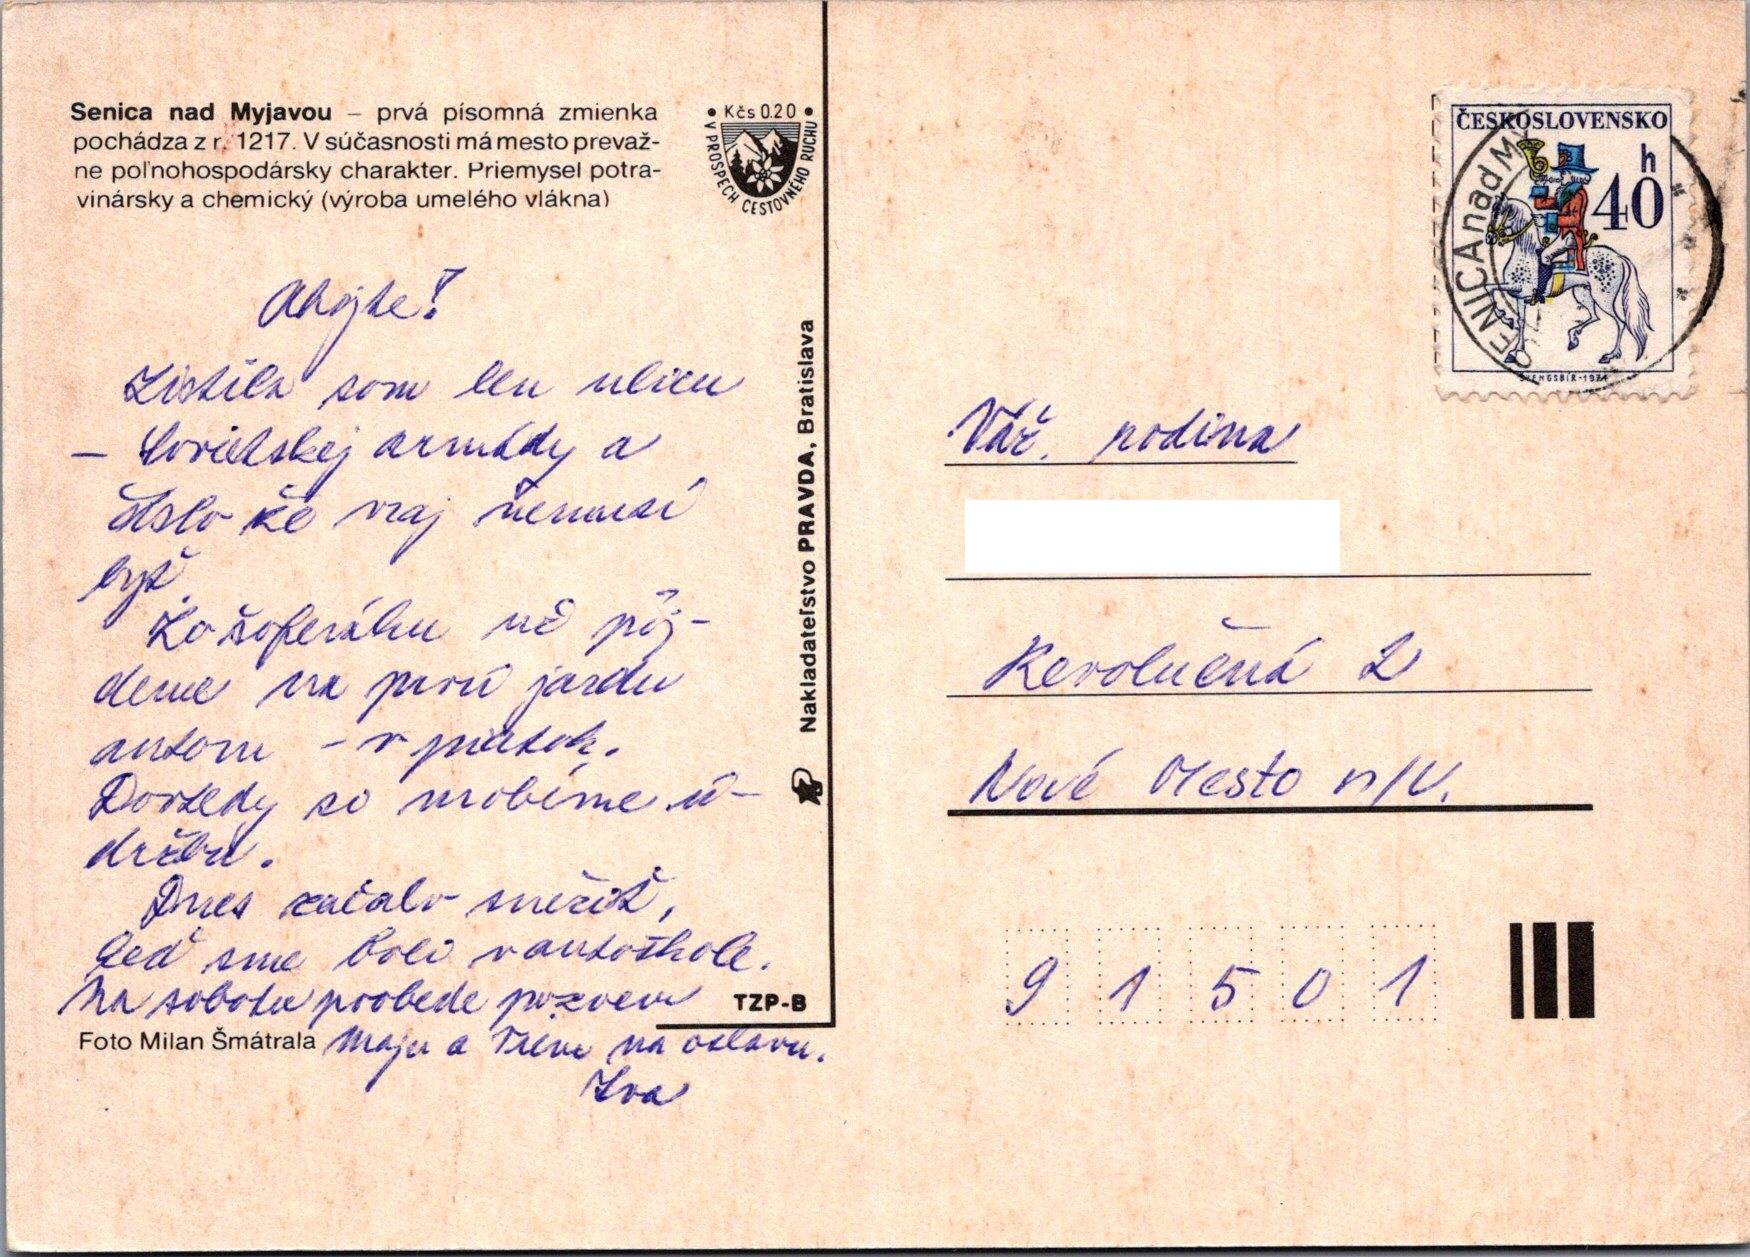 Senica nad Myjavou – prvá písomná zmienka
pochádza z r. 1217. V súčasnosti má mesto prevaž-
ne poľnohospodársky charakter. Priemysel potra-
vinársky a chemický (výroba umelého vlákna)
• Kčs 0.20 •
V PROSPECH CESTOVNÉHO RUCHU
Ahojte!
Zistila som len ulicu
– Sovietskej armády a
číslo že vraj nemusí
byť.
Zo šoferáku už pôj-
deme na prvú jazdu
autom – v piatok.
Dovtedy so urobíme ú-
držbu.
Dnes začalo snežiť,
keď sme boli v autoškole.
Na sobotu poobede pozvem
Maju a Trenu na oslavu.
Iva
Foto Milan Šmátrala
TZP-B
Nakladateľstvo PRAVDA, Bratislava
ČESKOSLOVENSKO
h
40
SENICA nad M
Váž. rodina
Revolučná 2
Nové Mesto n/V.
9 1 5 0 1